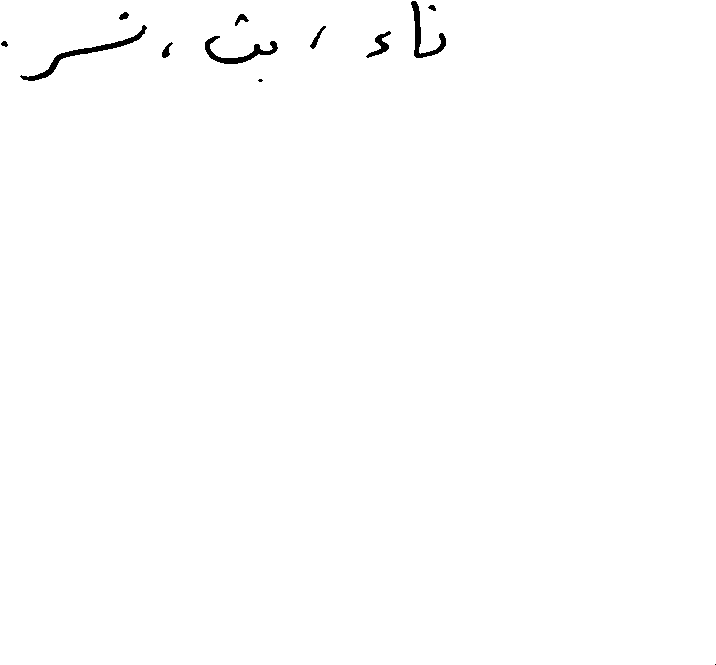 ناء ، بث ، نسر .